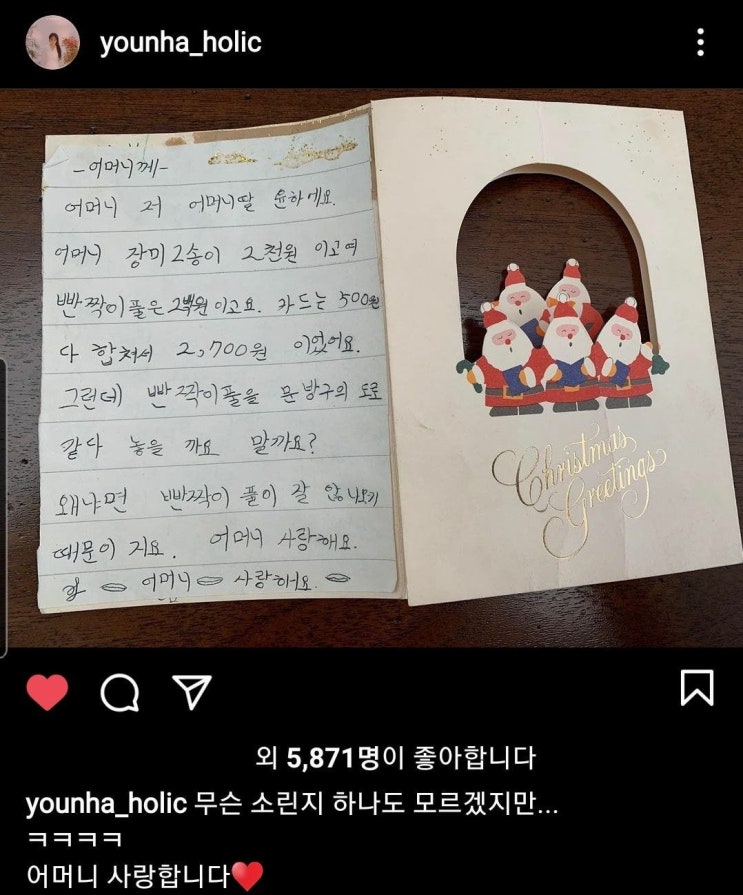 younha_holic
-어머니께-
어머니 저 어머니딸 윤하에요.
어머니 장미 2송이 2천원 이고여
빤짝이풀은 2백원이고요. 카드는 500원
다 합쳐서 2,700원 이었어요.
그런데 빤짝이풀을 문방구의 도로
갔다 놓을 까요 말까요?
왜냐면 빤짝이 풀이 잘 않나오기
때문이 지요. 어머니 사랑해요.
어머니 사랑해요.
Christmas
Greetings
외 5,871명이 좋아합니다
younha_holic 무슨 소린지 하나도 모르겠지만...
ㅋㅋㅋㅋ
어머니 사랑합니다♥